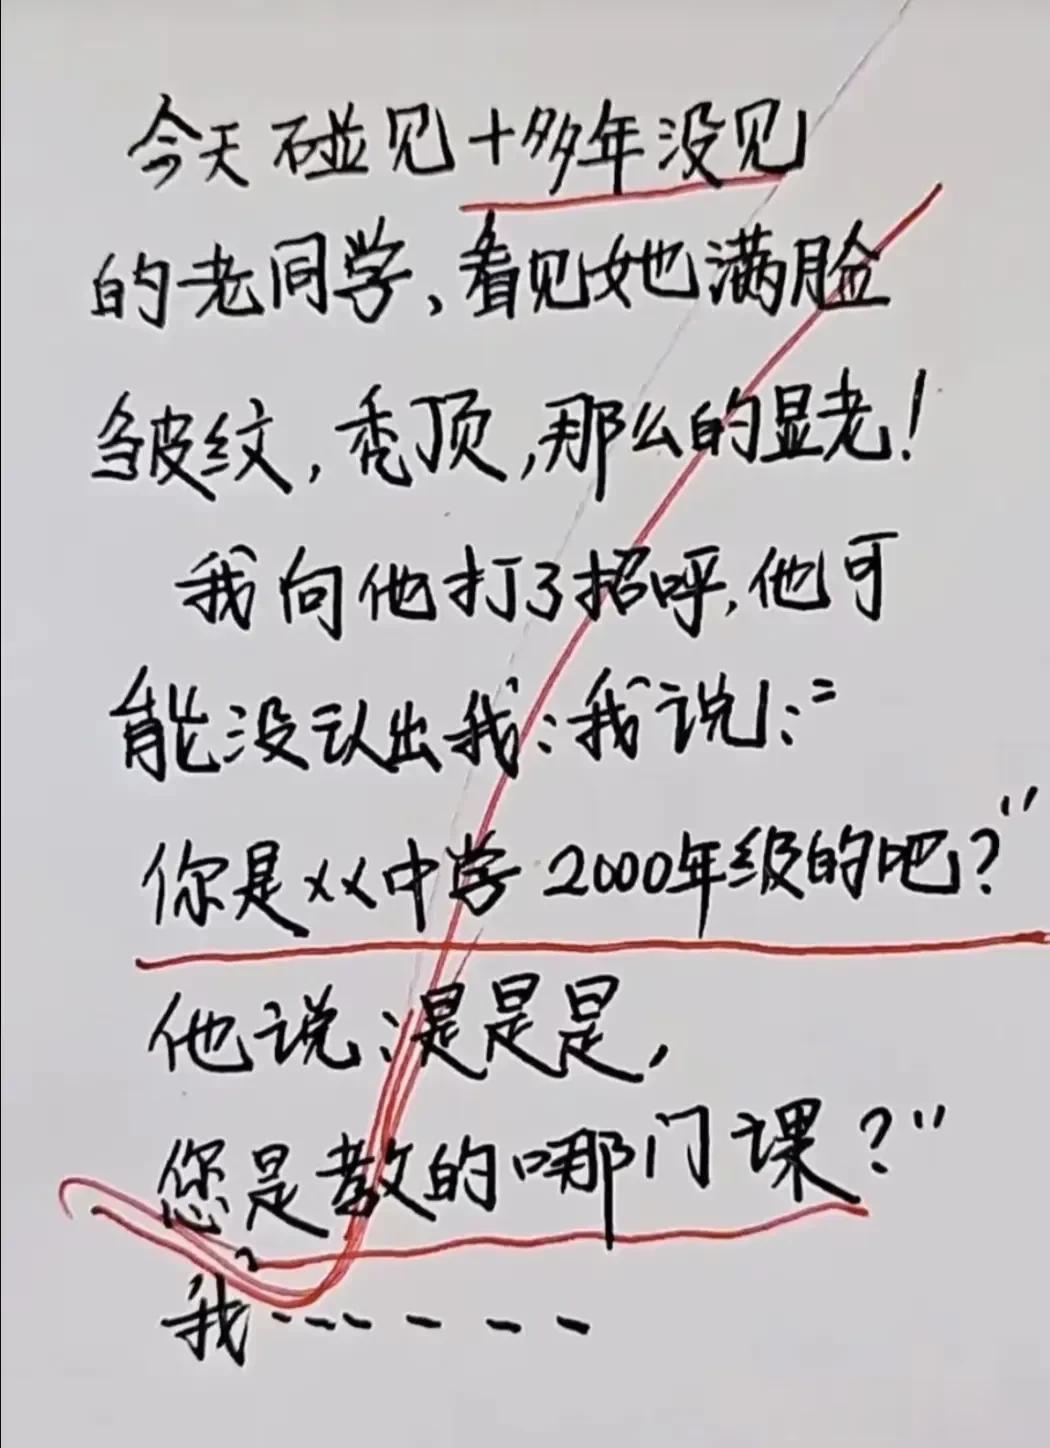 今天碰见十多年没见
的老同学、看见她满脸
皱纹,秃顶,那么的显老!
我向他打了招呼,他可
能没认出我:我说:"
你是××中学2000年级的吧?"
他说:是是是,
您是教的哪门课?"
我……----